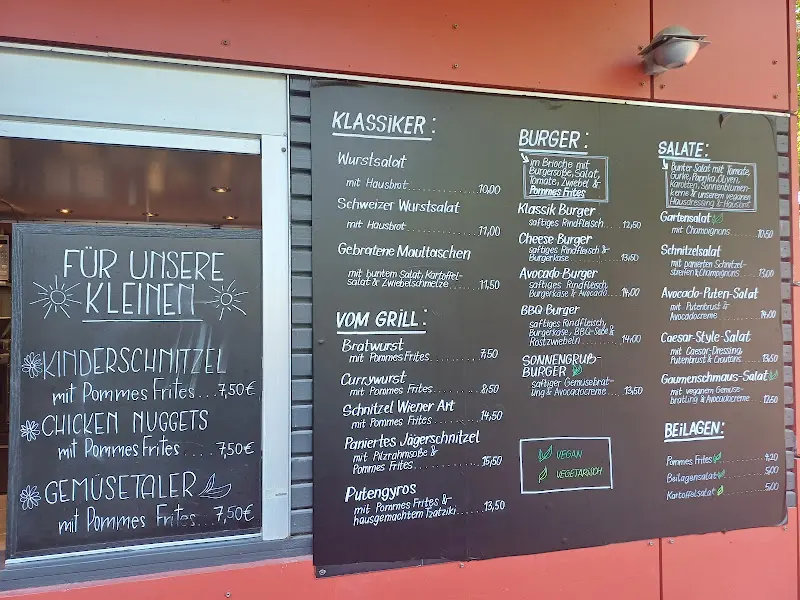 FÜR UNSERE
KLEINEN
KINDERSCHNITZEL
mit Pommes Frites ... 7,50€
CHICKEN NUGGETS
mit Pommes Frites ..... 7,50€
GEMÜSETALER
mit Pommes Frites ... 7,50€
KLASSIKER:
Wurstsalat
mit Hausbrot .......... 10,00
Schweizer Wurstsalat
mit Hausbrot .......... 11,00
Gebratene Maultaschen
mit buntem Salat, Kartoffel-
salat & Zwiebelschmelze ...... 11,50
VOM GRILL:
Bratwurst
mit Pommes Frites ...... 7,50
Currywurst
mit Pommes Frites ...... 8,50
Schnitzel Wiener Art
mit Pommes Frites ...... 14,50
Paniertes Jägerschnitzel
mit Pilzrahmsoße &
Pommes Frites ...... 15,50
Putengyros
mit Pommes Frites &
hausgemachtem Tzatziki ...... 13,50
BURGER:
im Brioche mit
Burgersoße, Salat,
Tomate, Zwiebel &
Pommes Frites
Klassik Burger
saftiges Rindfleisch ..... 12,50
Cheese Burger
saftiges Rindfleisch &
Burgerkäse ..... 13,50
Avocado Burger
saftiges Rindfleisch,
Burgerkäse & Avocado ... 14,00
BBQ Burger
saftiges Rindfleisch,
Burgerkäse, BBQ-Soße &
Röstzwiebeln ..... 14,00
SONNENGRUß-
BURGER
saftiger Gemüsebrat-
ling & Avocadocreme ..... 13,50
VEGAN
VEGETARISCH
SALATE:
Bunter Salat mit Tomate,
Gurke, Paprika, Oliven,
Karotten, Sonnenblumen-
kerne & unserem veganen
Hausdressing & Hausbrot
Gartensalat
mit Champignons ..... 10,50
Schnitzelsalat
mit panierten Schnitzel-
streifen & Champignons ... 13,00
Avocado-Puten-Salat
mit Putenbrust &
Avocadocreme ..... 14,00
Caesar-Style-Salat
mit Caesar-Dressing,
Putenbrust & Croutons ..... 13,50
Gaumenschmaus-Salat
mit veganem Gemüse-
bratling & Avocadocreme ... 12,50
BEILAGEN:
Pommes Frites ..... 4,20
Beilagensalat ..... 5,00
Kartoffelsalat ..... 5,00